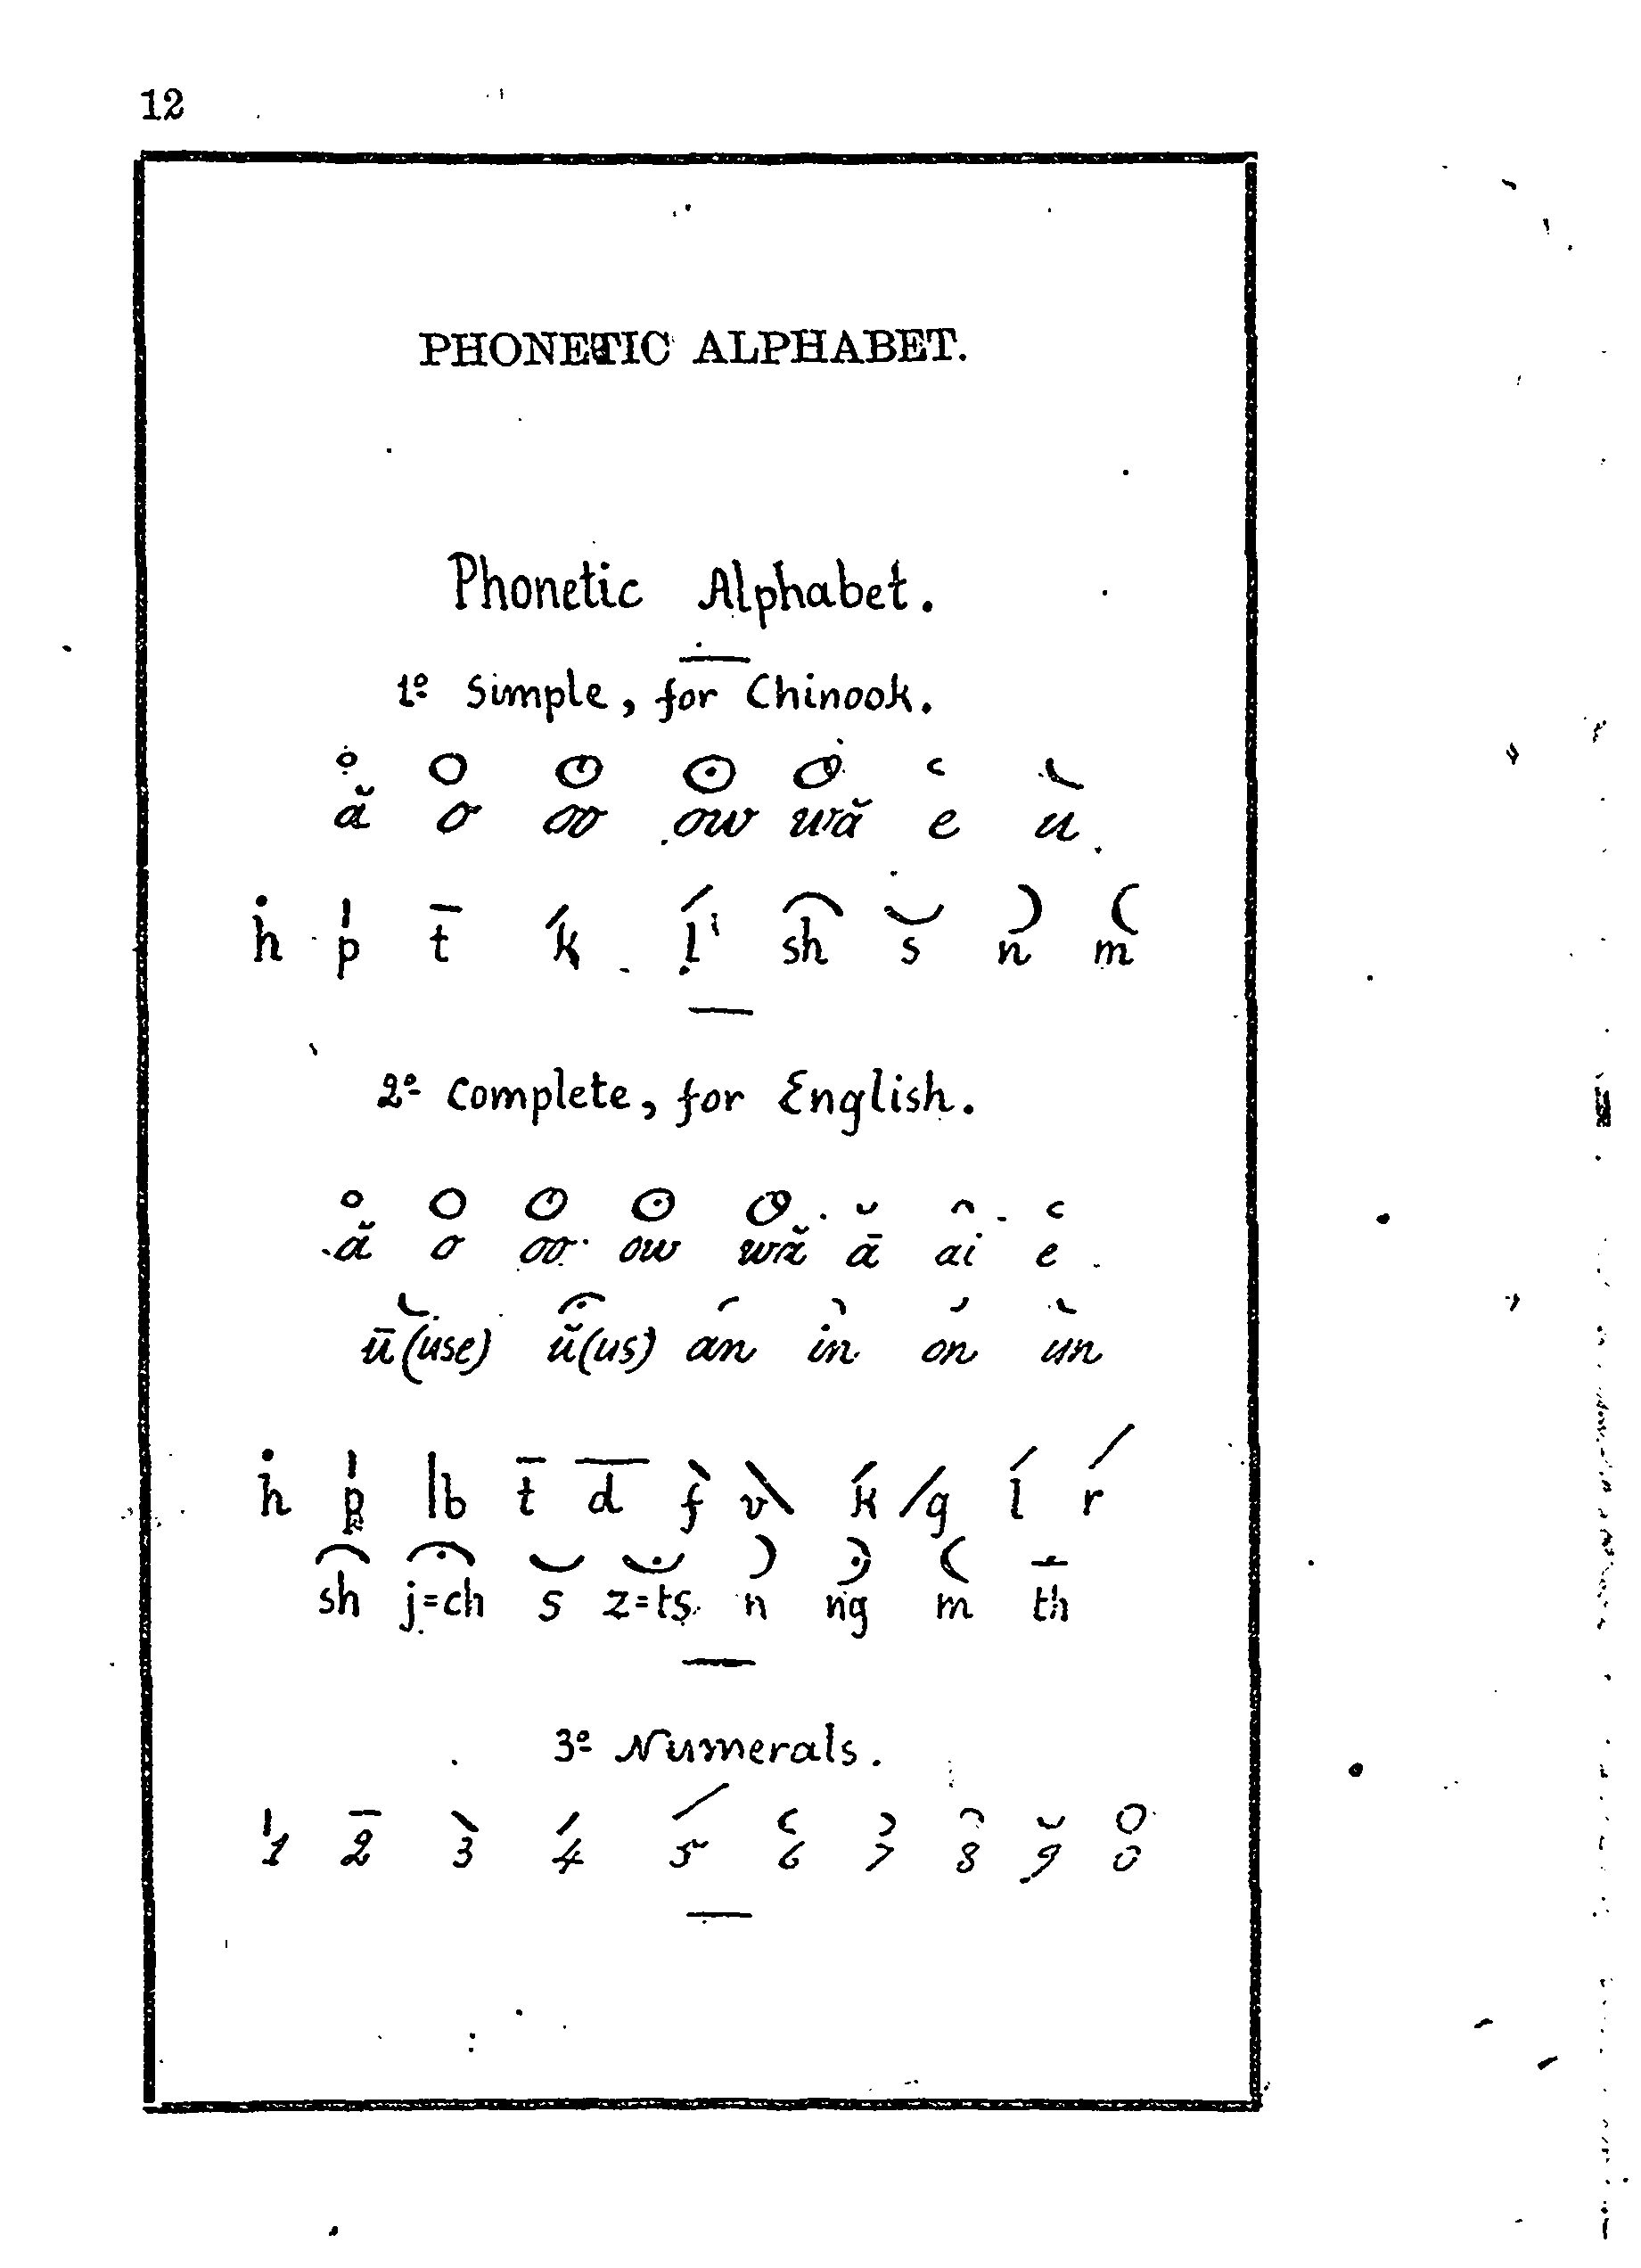 12
PHONETIC ALPHABET.
Phonetic Alphabet.
1º Simple, for Chinook.
ă o oo ow wă e u
h p t k l sh s n m
2º Complete, for English.
ă o oo ow wă ā ai e
ū (use) ŭ (us) an in on un
h p b t d f v k g l r
sh j=ch s z=ts n ng m th
3º Numerals.
1 2 3 4 5 6 7 8 9 0